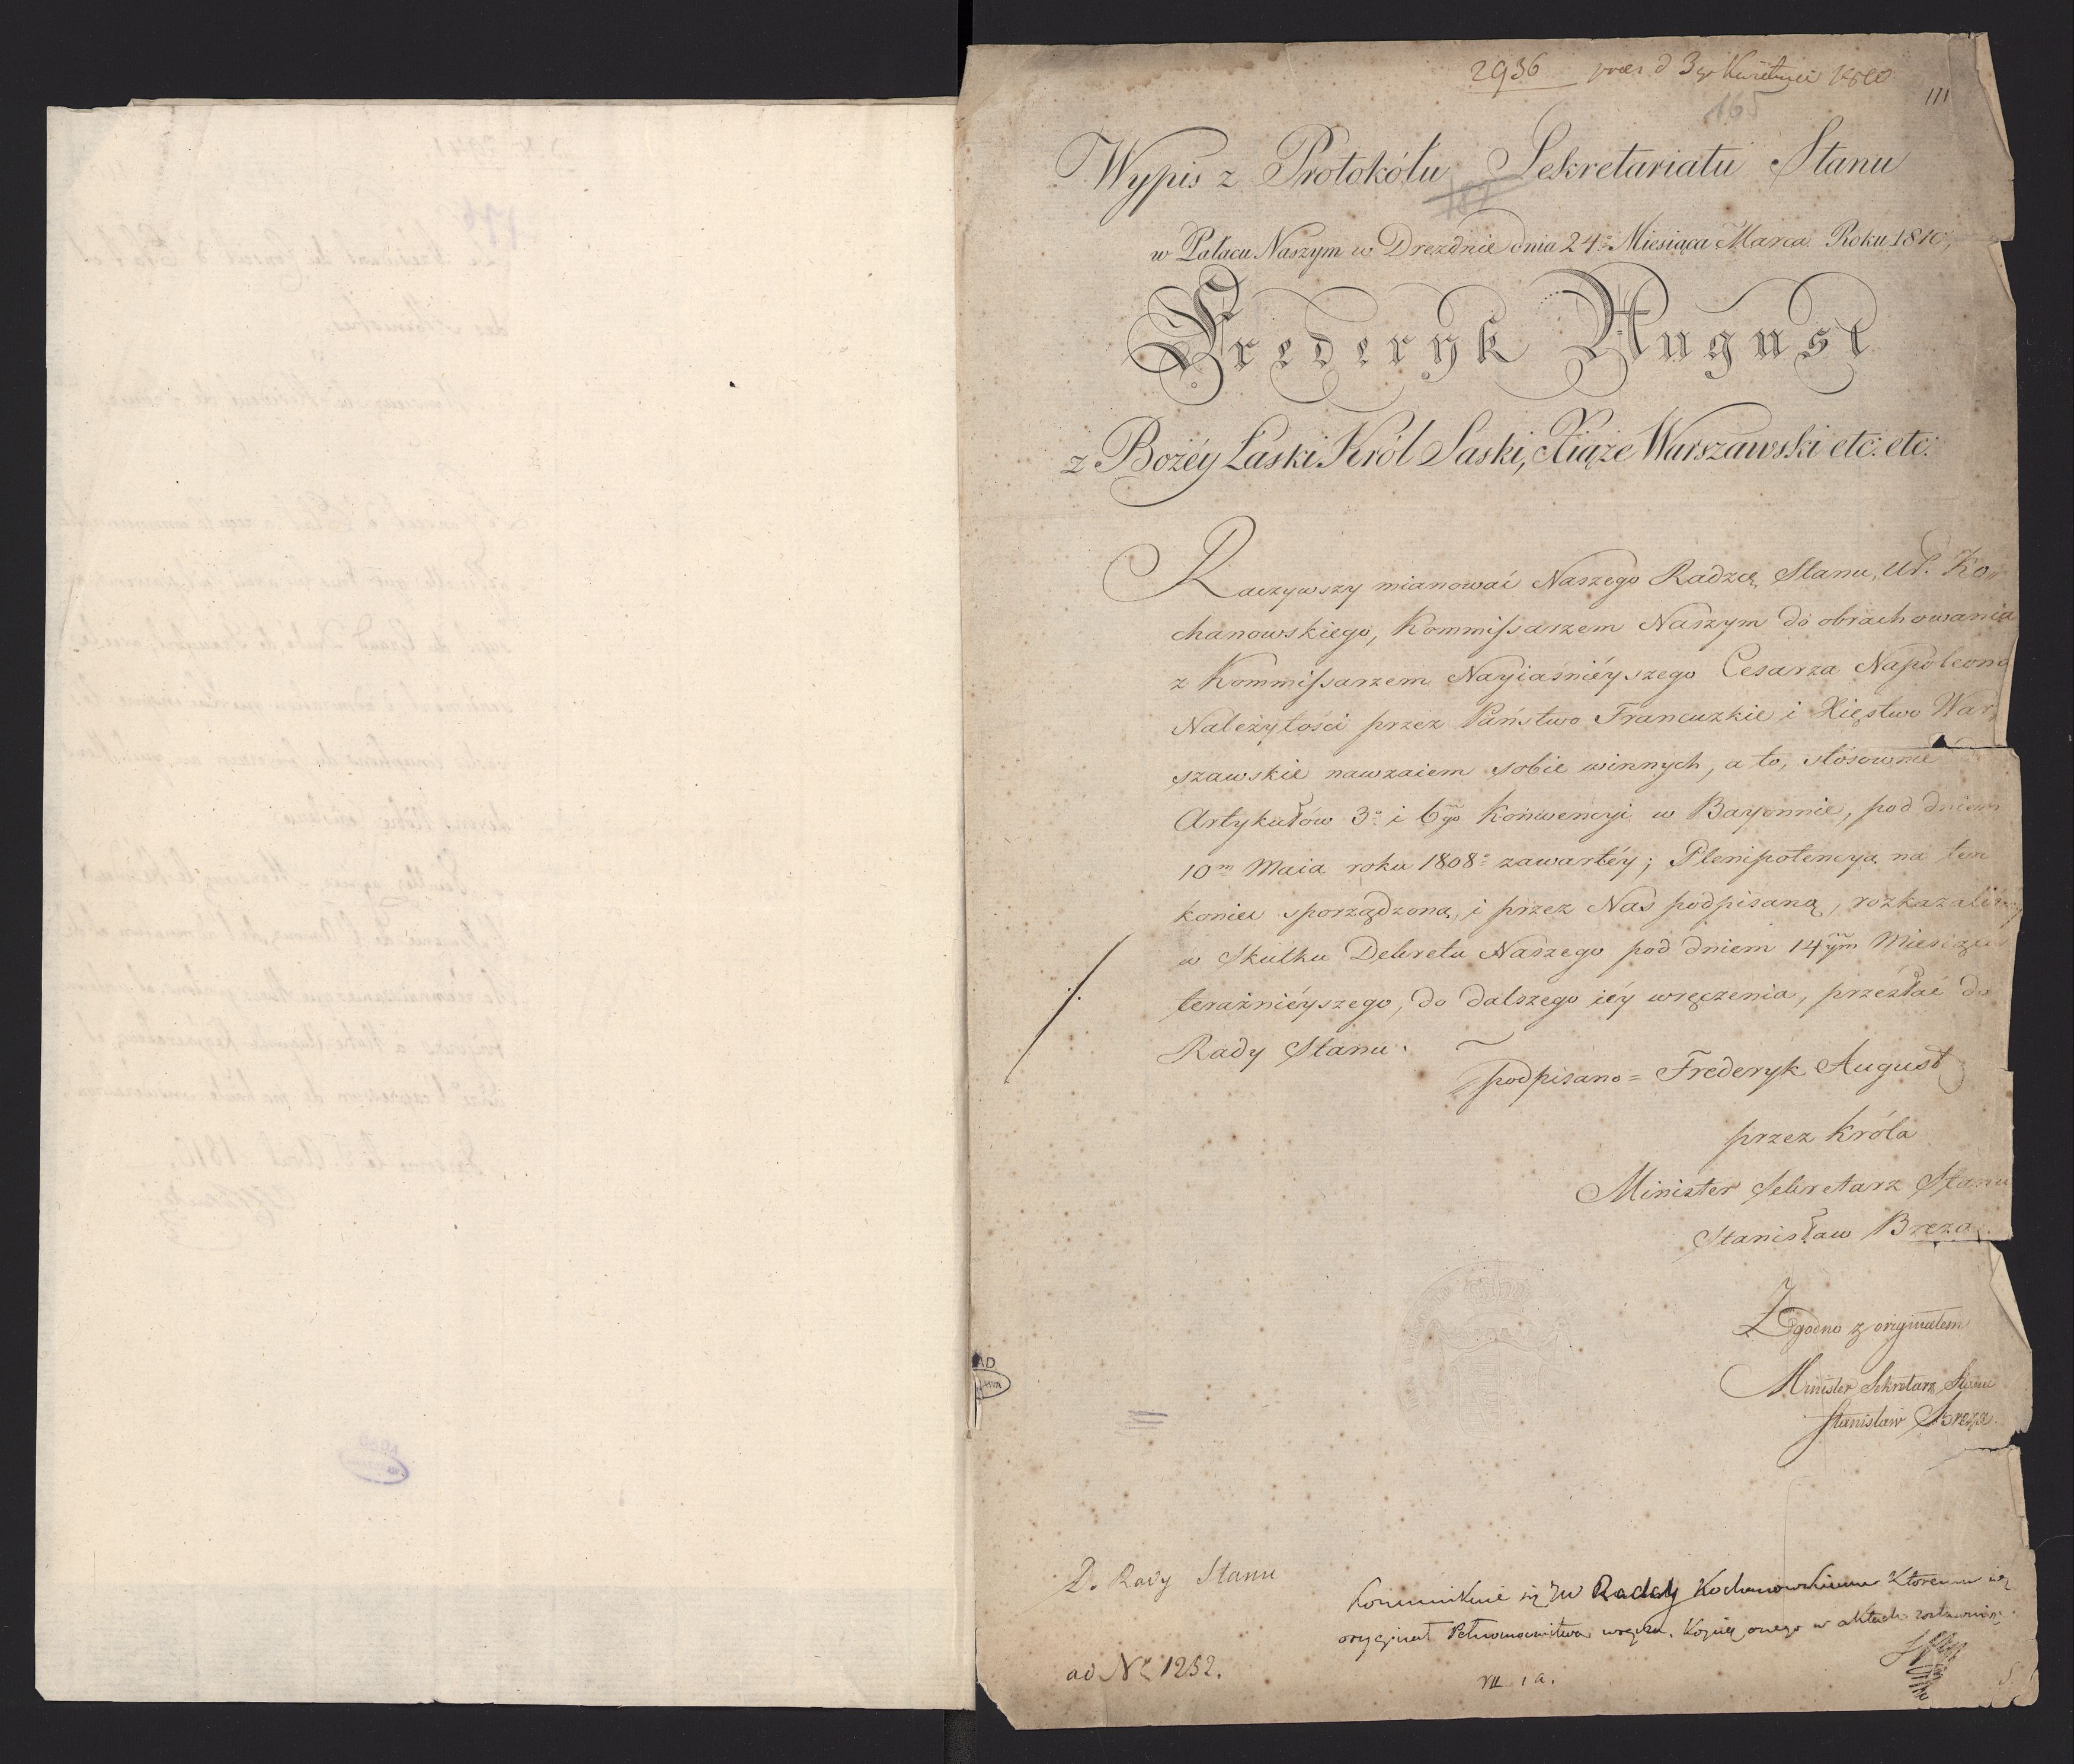 2936 praes d 3go Kwietnia 1810
111
165
Wypis z Protokółu Sekretariatu Stanu
w Pałacu Naszym w Dreźdnie dnia 24o Miesiąca Marca Roku 1810
Frederyk August
z Bożéy Łaski Król Saski, Xiąże Warszawski etc: etc:
Raczywszy mianować Naszego Radzcę Stanu, Ur. Ko-
chanowskiego, Kommissarzem Naszym do obrachowania
z Kommissarzem Nayiaśniéyszego Cesarza Napoleona
Należytości przez Państwo Francuzkie i Xięstwo War-
szawskie nawzaiem sobie winnych, a to, stósownie
Artykułów 3o i 6go Konwencyi w Bayonnie, pod dniem
10m Maia roku 1808o zawartéy; Plenipotencyą na ten
koniec sporządzoną, i przez Nas podpisaną, rozkazaliśmy
w Skutku Dekretu Naszego pod dniem 14ym Miesiąca
teraźniéyszego, do dalszego iéy wręczenia, przesłać do
Rady Stanu.
podpisano = Frederyk August
przez Króla
Minister Sekretarz Stanu
Stanisław Breza
Zgodno z originałem
Minister Sekretarz Stanu
Stanisław Breza
Do Rady Stanu
Kommunikuie się JW Radcy Kochanowskiemu któremu się
oryginał Pełnomocnictwa wręcza. Kopią onego w aktach zostawuiąc.
ad Nr 1232.
VII 1 a.